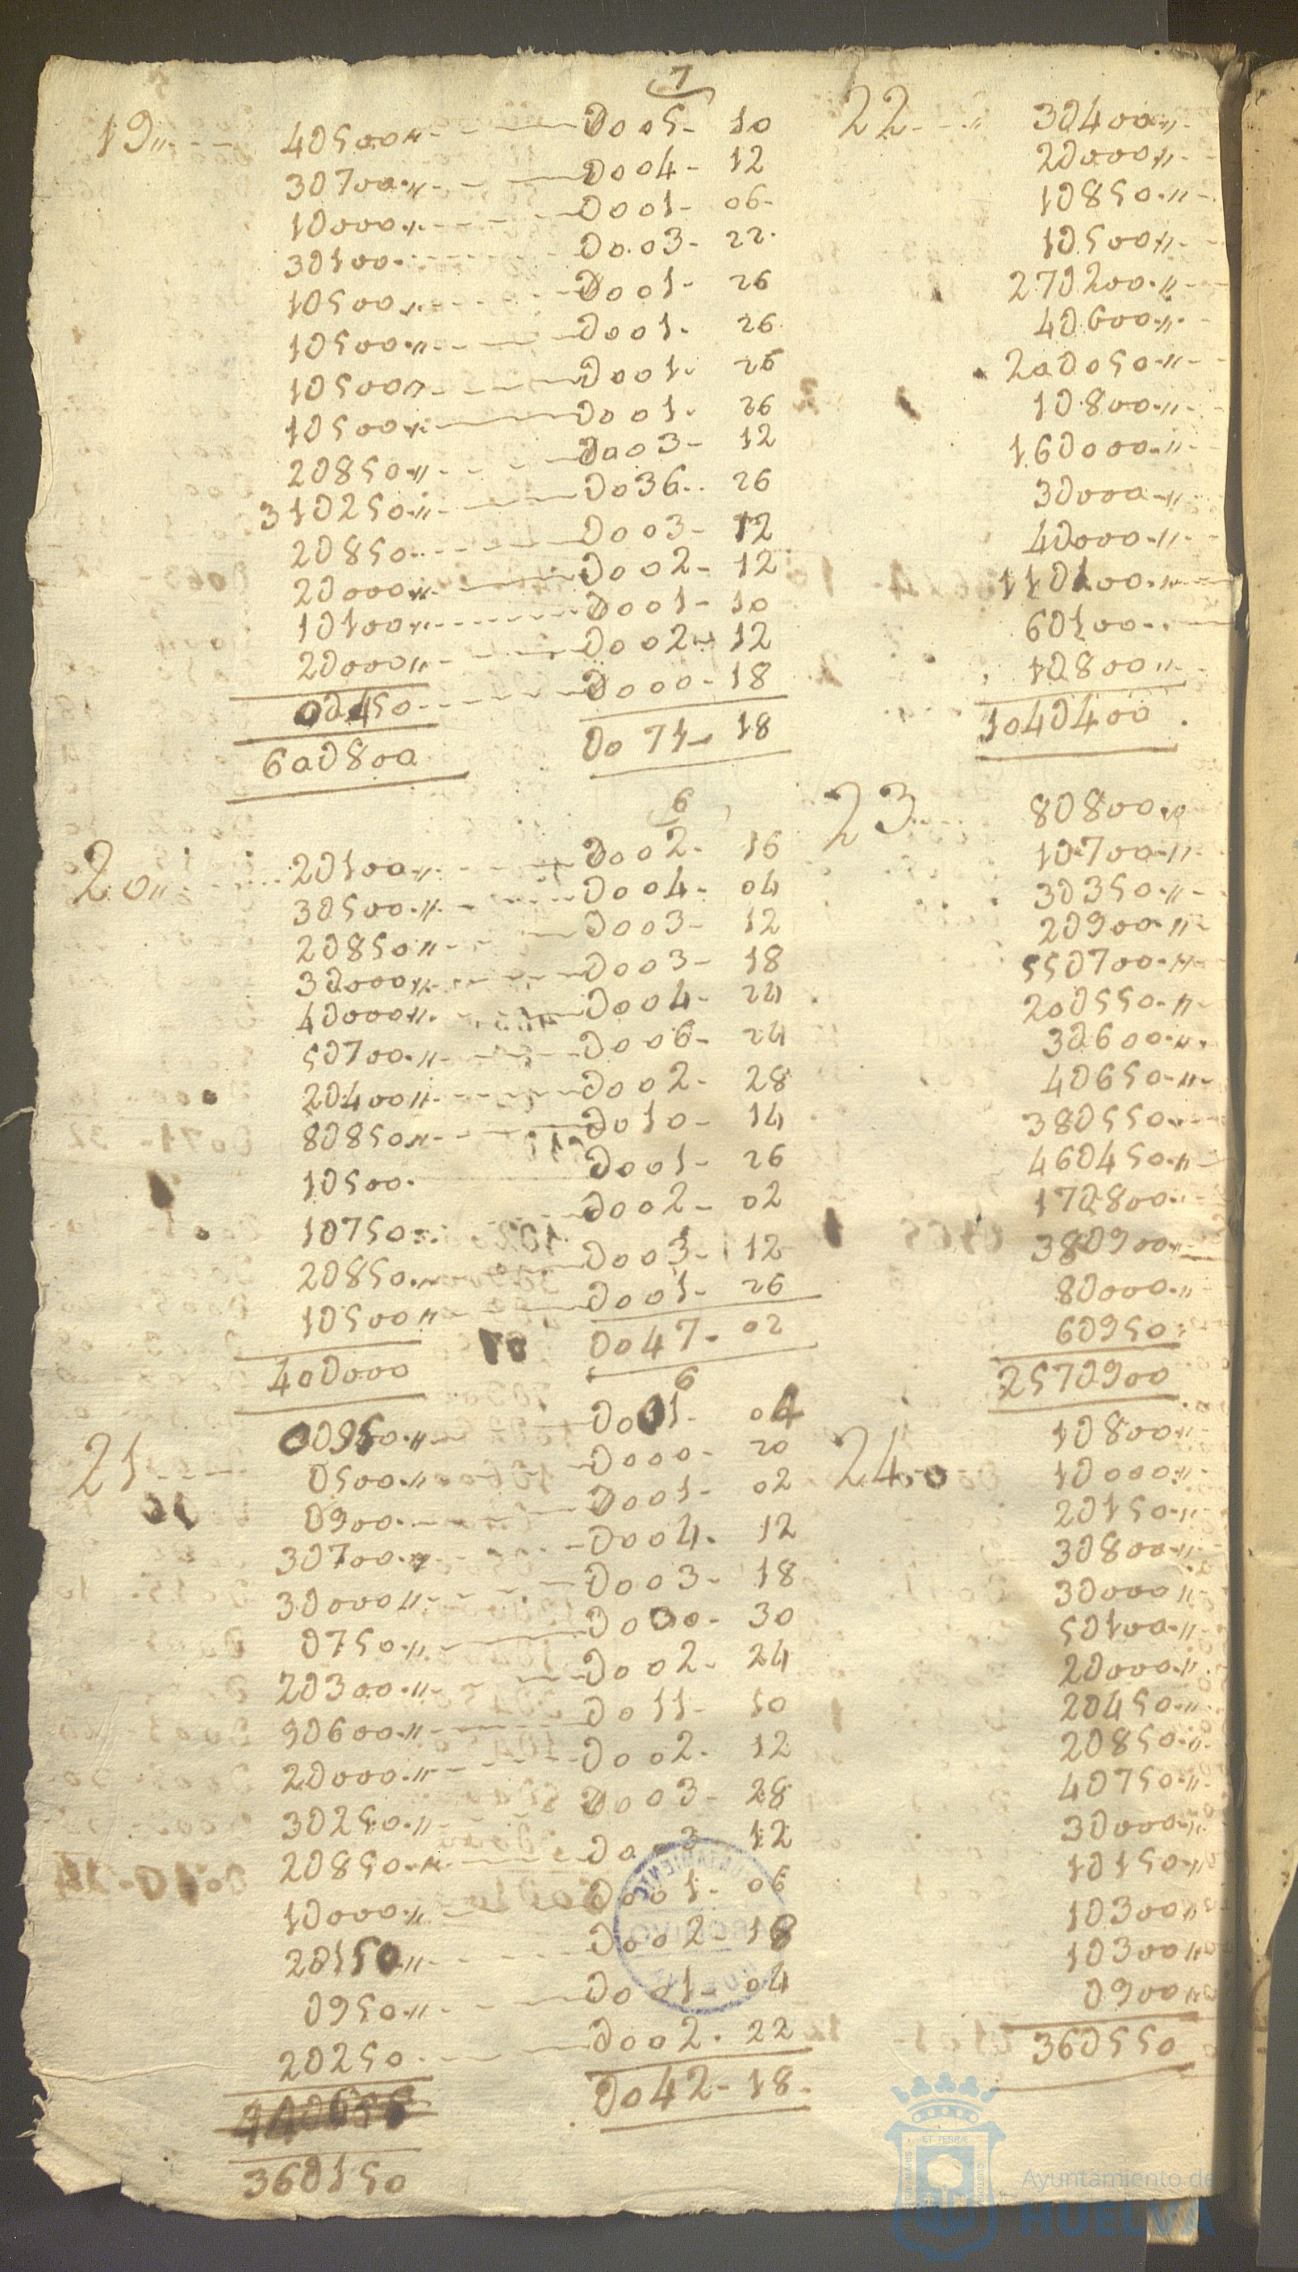 7
19,, 4D500,, D005 - 10
3D700,, D004 - 12
1D000,, D001 - 06
3D100 D003 - 22
1D500,, D001 - 26
1D500,, D001 - 26
1D500,, D001 - 26
1D500,, D001 - 26
2D850,, D003 - 12
31D250,, D036 - 26
2D850 D003 - 12
2D000,, D002 - 12
1D100,, D001 - 10
2D000,, D002 - 12
0D450 D000 - 18
60D800 D071 - 18
6
20,, 2D100,, D002 - 16
3D500,, D004 - 04
2D850,, D003 - 12
3D000,, D003 - 18
4D000,, D004 - 24
5D700,, D006 - 24
2D400,, D002 - 28
8D850,, D010 - 14
1D500 D001 - 26
1D750 D002 - 02
2D850,, D003 - 12
1D500,, D001 - 26
40D000 D047 - 02
6
21 0D950,, D001 - 04
D500,, D000 - 20
D900 D001 - 02
3D700,, D004 - 12
3D000,, D003 - 18
D750,, D000 - 30
2D300,, D002 - 24
9D600,, D011 - 10
2D000,, D002 - 12
3D250,, D003 - 28
2D850,, D003 - 12
1D000,, D001 - 06
2D150,, D002 - 18
D950,, D001 - 04
2D250 D002 - 22
D042 - 18
36D150
22 3D400,,
2D000,,
1D850,,
1D500,,
27D200,,
4D600,,
20D050,,
1D800,,
16D000,,
3D000,,
4D000,,
11D100,,
6D100
1D800,,
104D400
23 8D800,,
1D700,,
3D350,,
2D900,,
55D700,,
20D550,,
3D600,,
4D650,,
38D550
46D450,,
17D800
38D900,,
8D000,,
6D950
257D900
24 1D800,,
1D000,,
2D150,,
3D800,,
3D000,,
5D100,,
2D000,,
2D450,,
2D850,,
4D750,,
3D000,,
1D150,,
1D300,,
1D300,,
D900,,
36D550
Ayuntamiento de
HUELVA